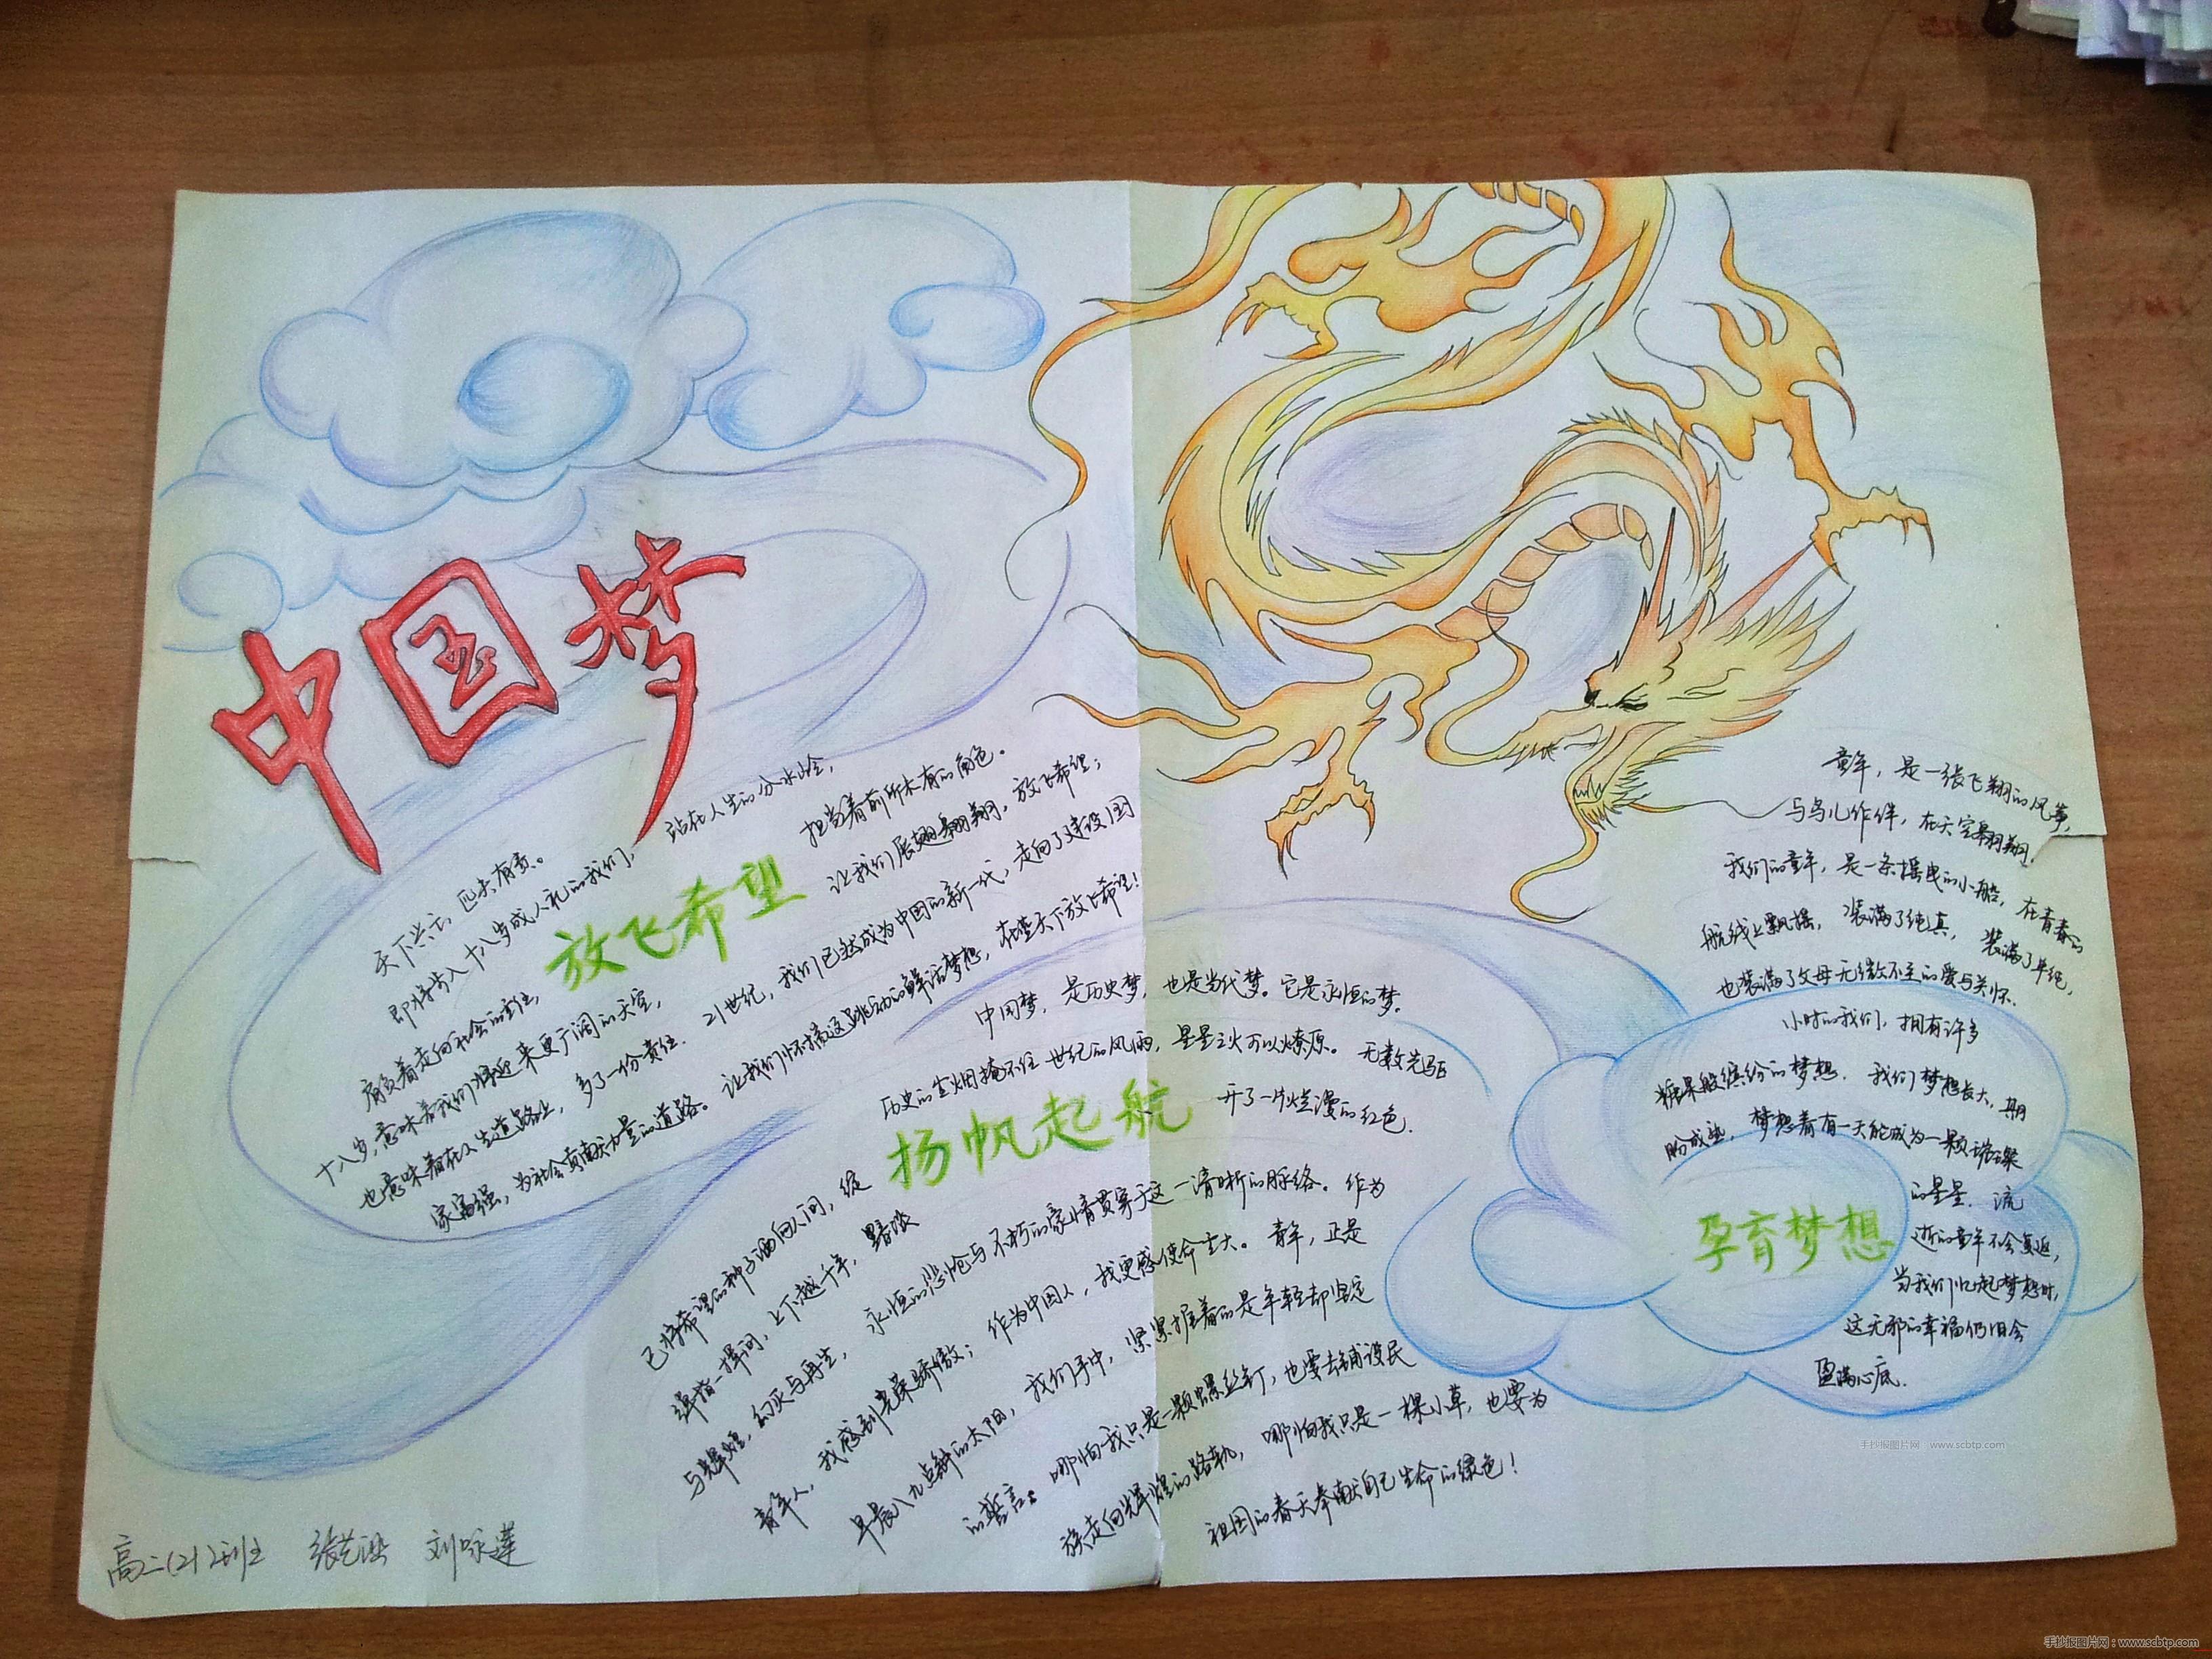 中国梦
天下兴亡，匹夫有责。
即将步入十八岁成人礼的我们，站在人生的分水岭，
肩负着走向社会的重任，担当着前所未有的角色。
放飞希望
十八岁，意味着我们将迎来更广阔的天空，让我们展翅翱翔，放飞希望；
也意味着在人生道路上，多了一份责任．21世纪，我们已然成为中国的新一代，走向了建设国
家富强，为社会贡献力量的道路。让我们怀揣这跳动的鲜活梦想，在蓝天下放飞希望！
中国梦，是历史梦，也是当代梦。它是永恒的梦。
历史的尘烟掩不住世纪的风雨，星星之火可以燎原。无数先驱
扬帆起航
已将希望的种子洒向人间，绽开了一片烂漫的红色．
弹指一挥间，上下越千年，黯淡
与辉煌，幻灭与再生，永恒的悲怆与不朽的豪情贯穿于这一清晰的脉络。作为
青年人，我感到光荣骄傲；作为中国人，我更感使命重大。青年，正是
早晨八九点钟的太阳，我们手中，紧紧握着的是年轻却坚定
的誓言：哪怕我只是一颗螺丝钉，也要去铺设民
族走向辉煌的路轨，哪怕我只是一棵小草，也要为
祖国的春天奉献自己生命的绿色！
童年，是一张飞翔的风筝，
与鸟儿作伴，在天空翱翔．
我们的童年，是一条摇曳的小船，在青春的
航线上飘摇，装满了纯真，装满了单纯，
也装满了父母无微不至的爱与关怀．
小时的我们，拥有许多
糖果般缤纷的梦想．我们梦想长大，期
盼成熟，梦想着有一天能成为一颗璀璨
的星星．流
孕育梦想
逝的童年不会复返，
当我们忆起梦想时，
这无邪的幸福仍旧会
盈满心底．
高二(21)班
刘咏莲
手抄报图片网 www.scbtp.com
手抄报图片网：www.scbtp.com